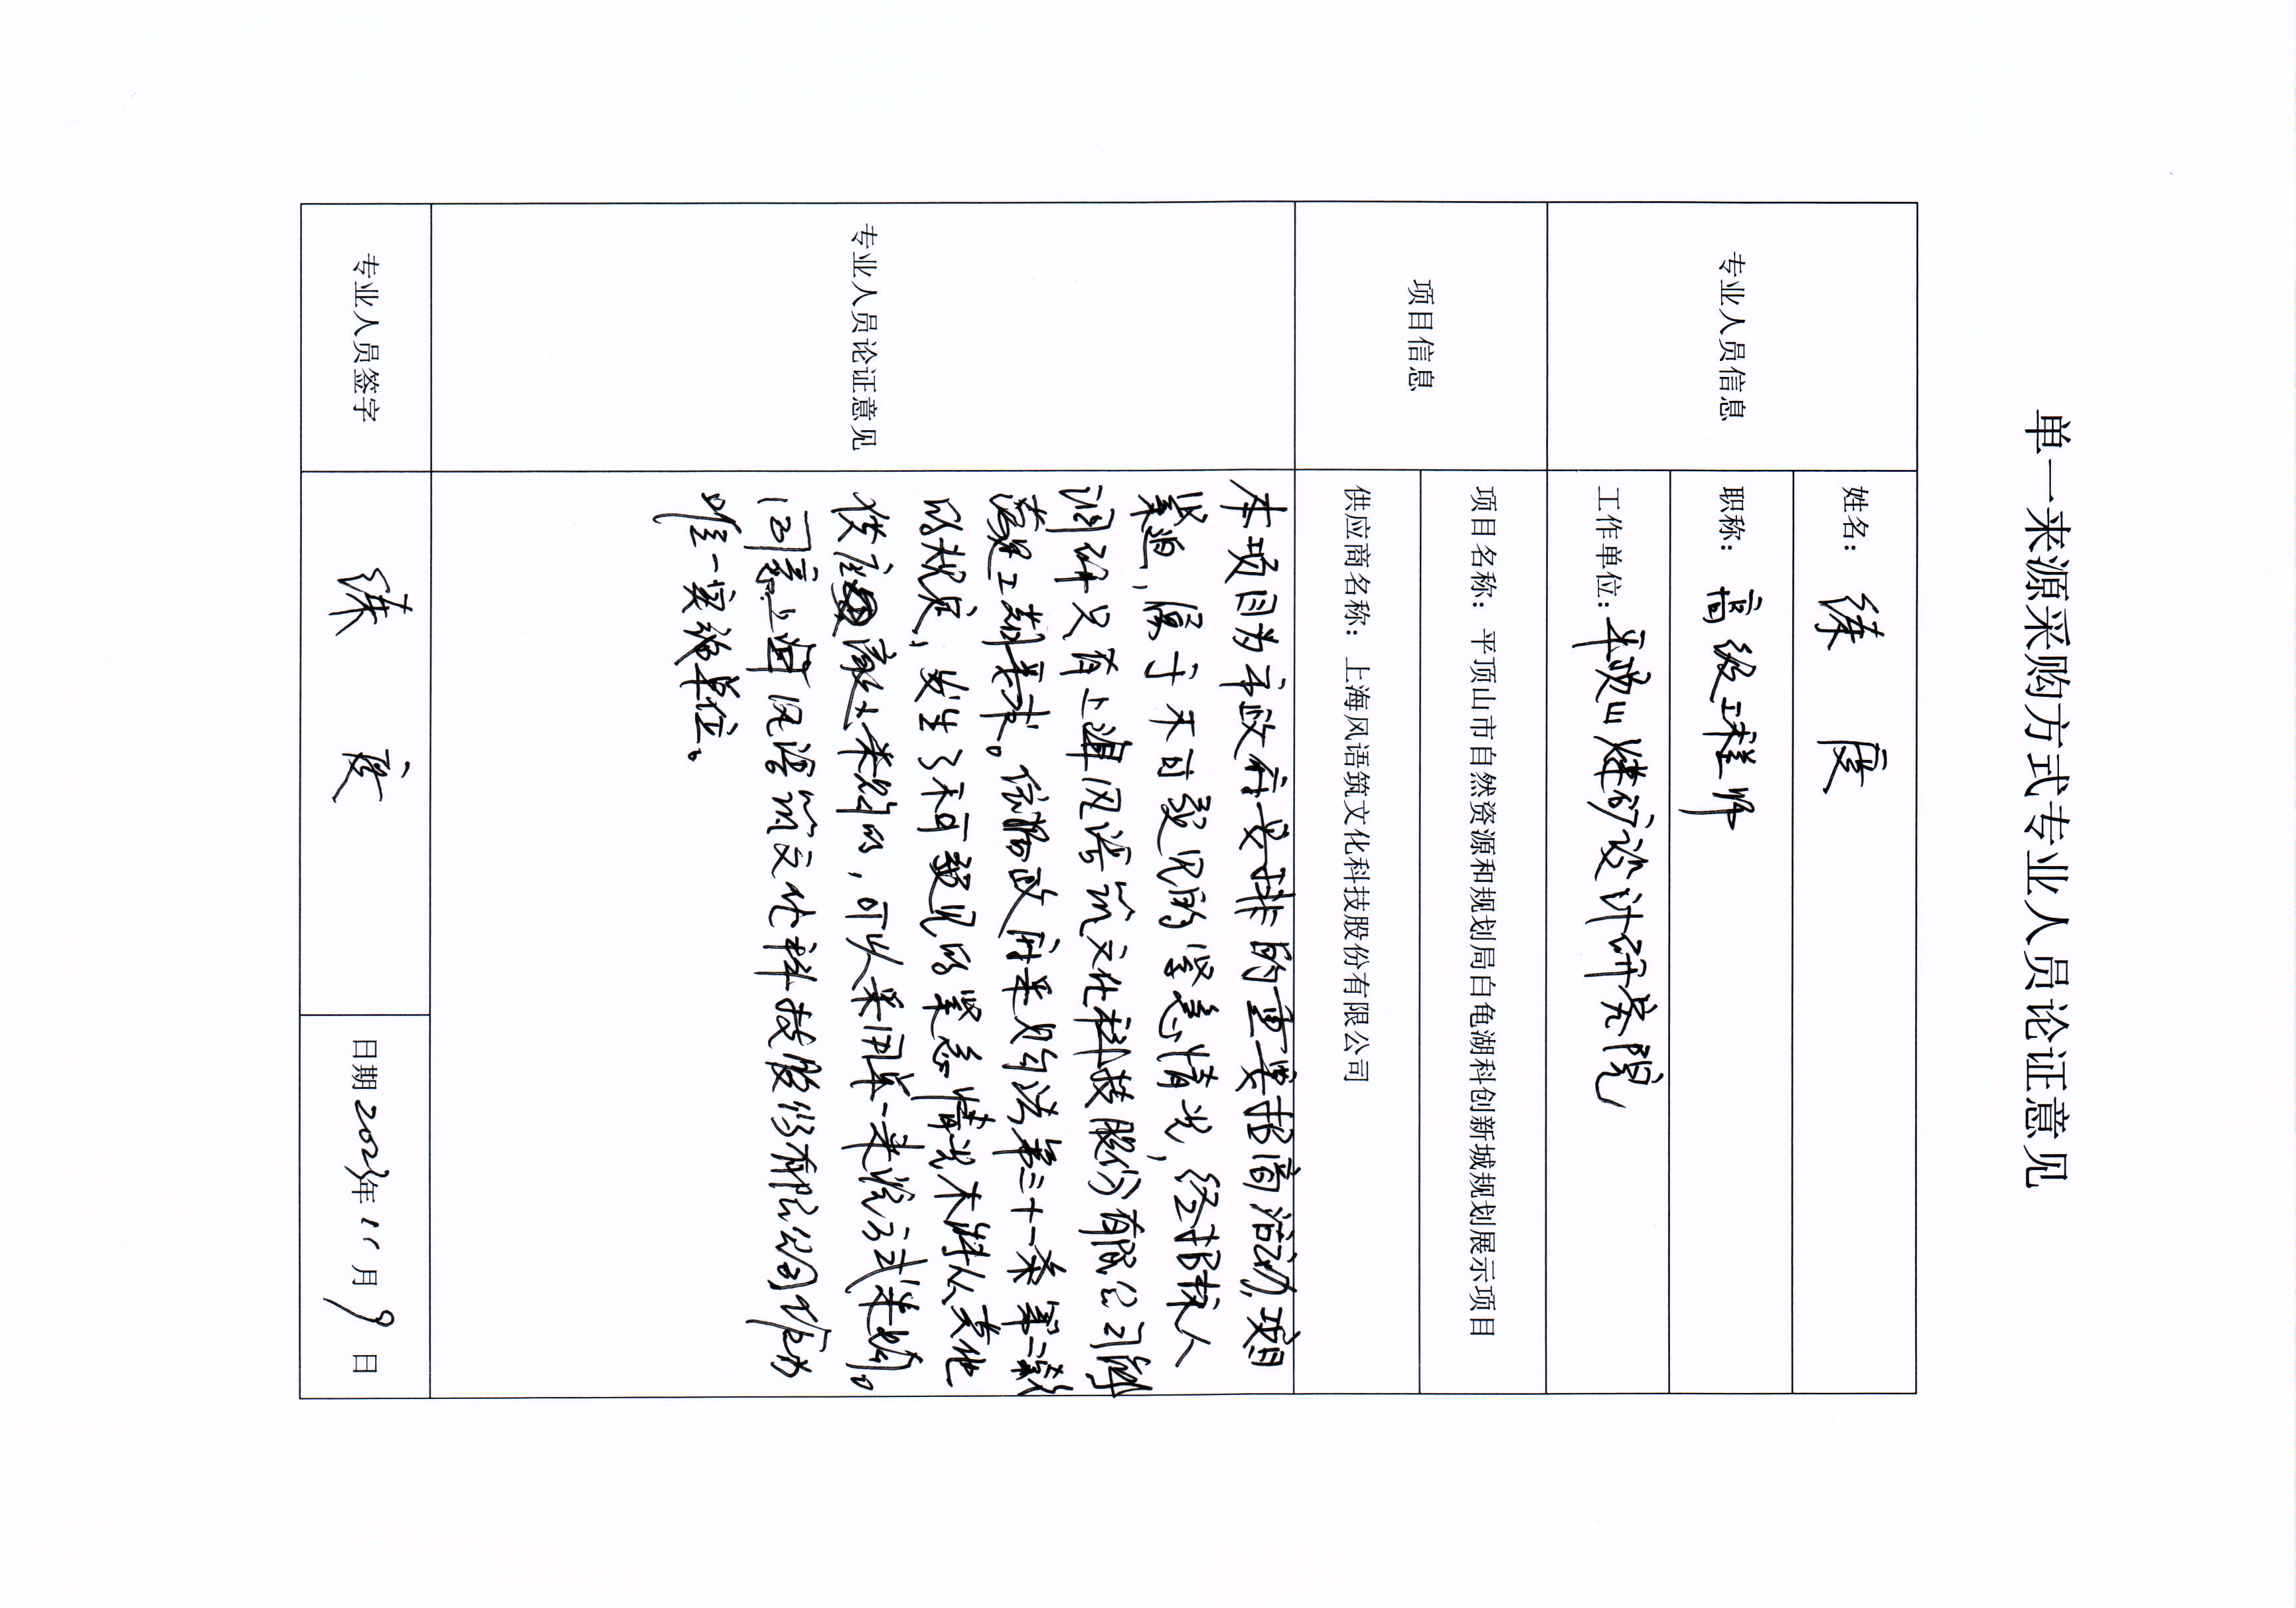 单一来源采购方式专业人员论证意见
专业人员信息
姓名：
职称：高级工程师
工作单位：平顶山煤矿设计研究院
项目信息
项目名称：平顶山市自然资源和规划局白龟湖科创新城规划展示项目
供应商名称：上海风语筑文化科技股份有限公司
专业人员论证意见
本项目为市政府安排的重要招商活动,项目
紧迫，属于不可预见的紧急情况，经招标人
调研只有上海风语筑文化科技股份有限公司能
满足工期要求。依据政府采购法第三十一条第二款
的规定，发生了不可预见的紧急情况不能从其他
供应商采购的，可以采用单一来源方式采购。
同意上海风语筑文化科技股份有限公司作为
唯一实施单位。
专业人员签字
日期2023年11月9日